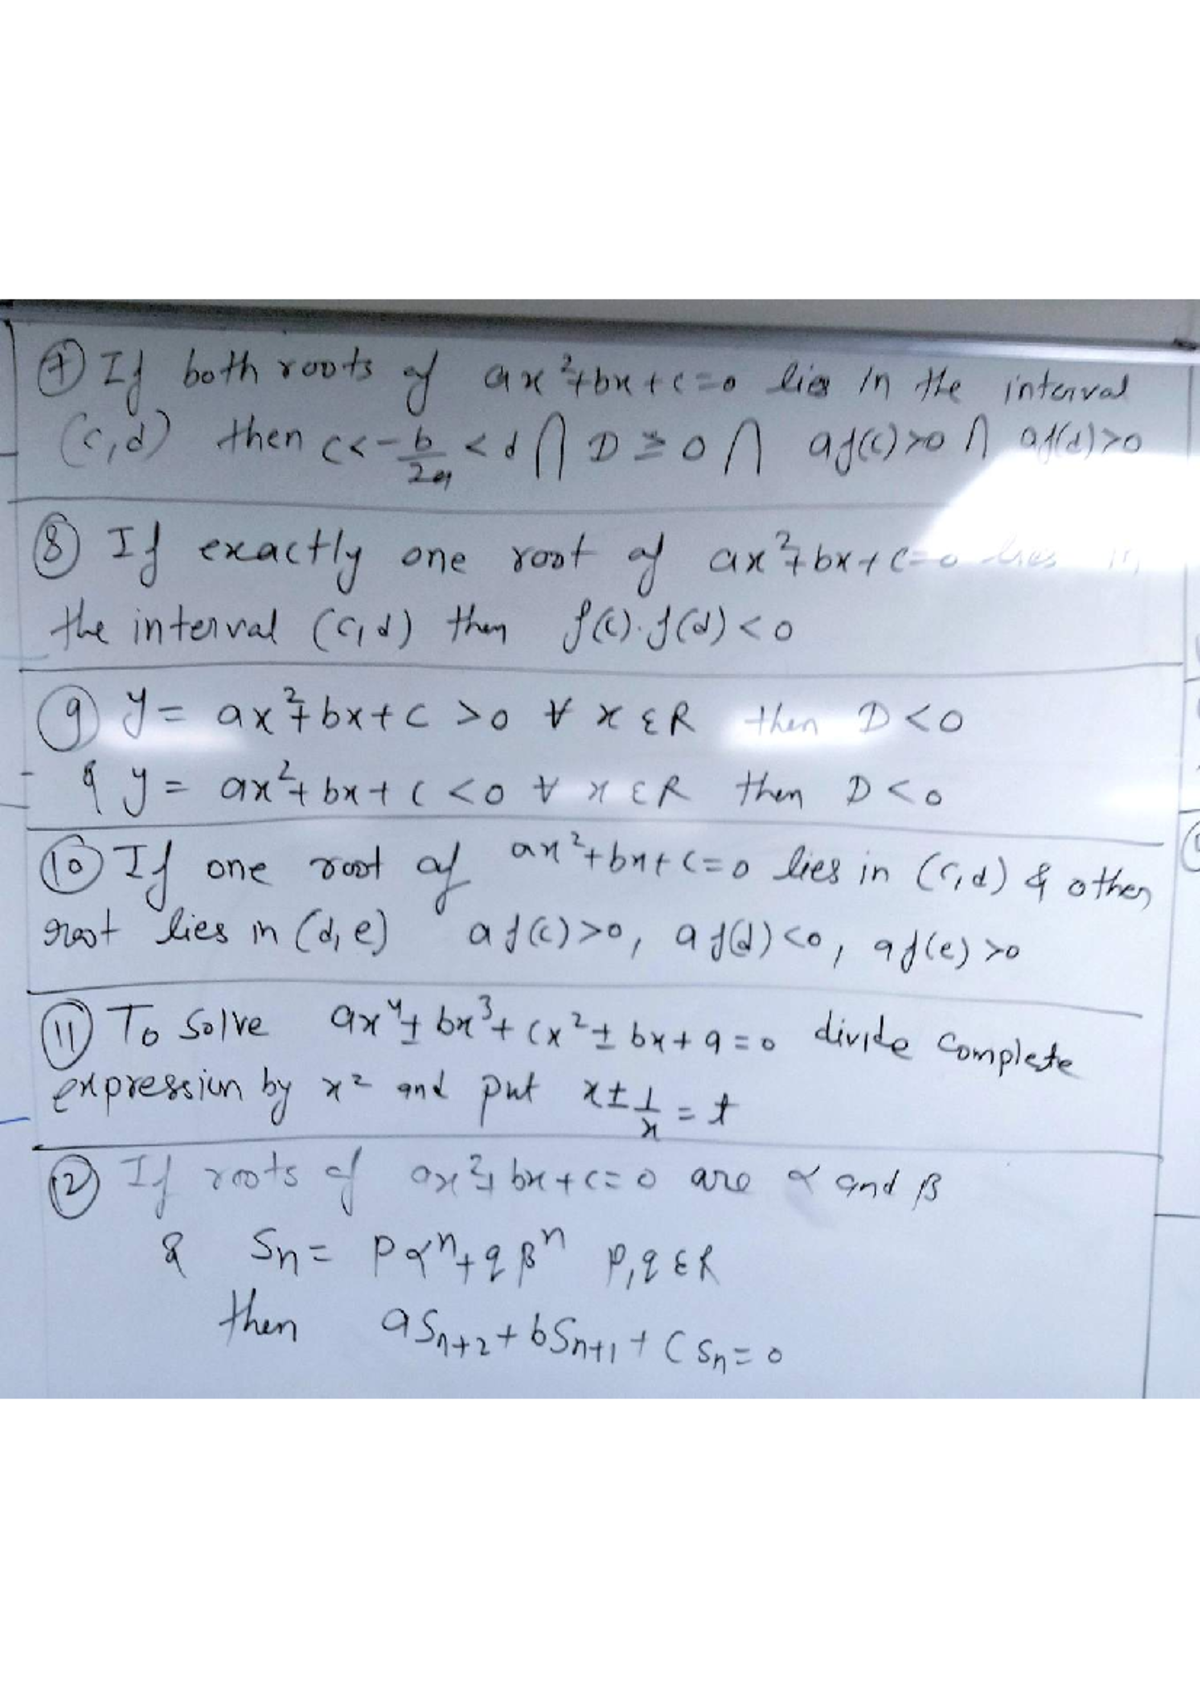 ⑦ If both roots of ax²+bx+c=0 lies in the interval
(c,d) then c<-b/2a<d ⋂ D≥0 ⋂ af(c)>0 ⋂ af(d)>0
⑧ If exactly one root of ax²+bx+c=0 lies in
the interval (c,d) then f(c).f(d)<0
⑨ y= ax²+bx+c >0 ∀ x ∈R then D<0
& y= ax²+bx+c <0 ∀ x ∈R then D<0
⑩ If one root of ax²+bx+c=0 lies in (c,d) & other
root lies in (d,e) af(c)>0, af(d)<0, af(e)>0
⑪ To solve ax⁴±bx³+cx²±bx+a=0 divide complete
expression by x² and put x±1/x=t
⑫ If roots of ax²+bx+c=0 are α and β
& Sn= pαⁿ+qβⁿ p,q ∈R
then aSn+2+bSn+1+cSn=0